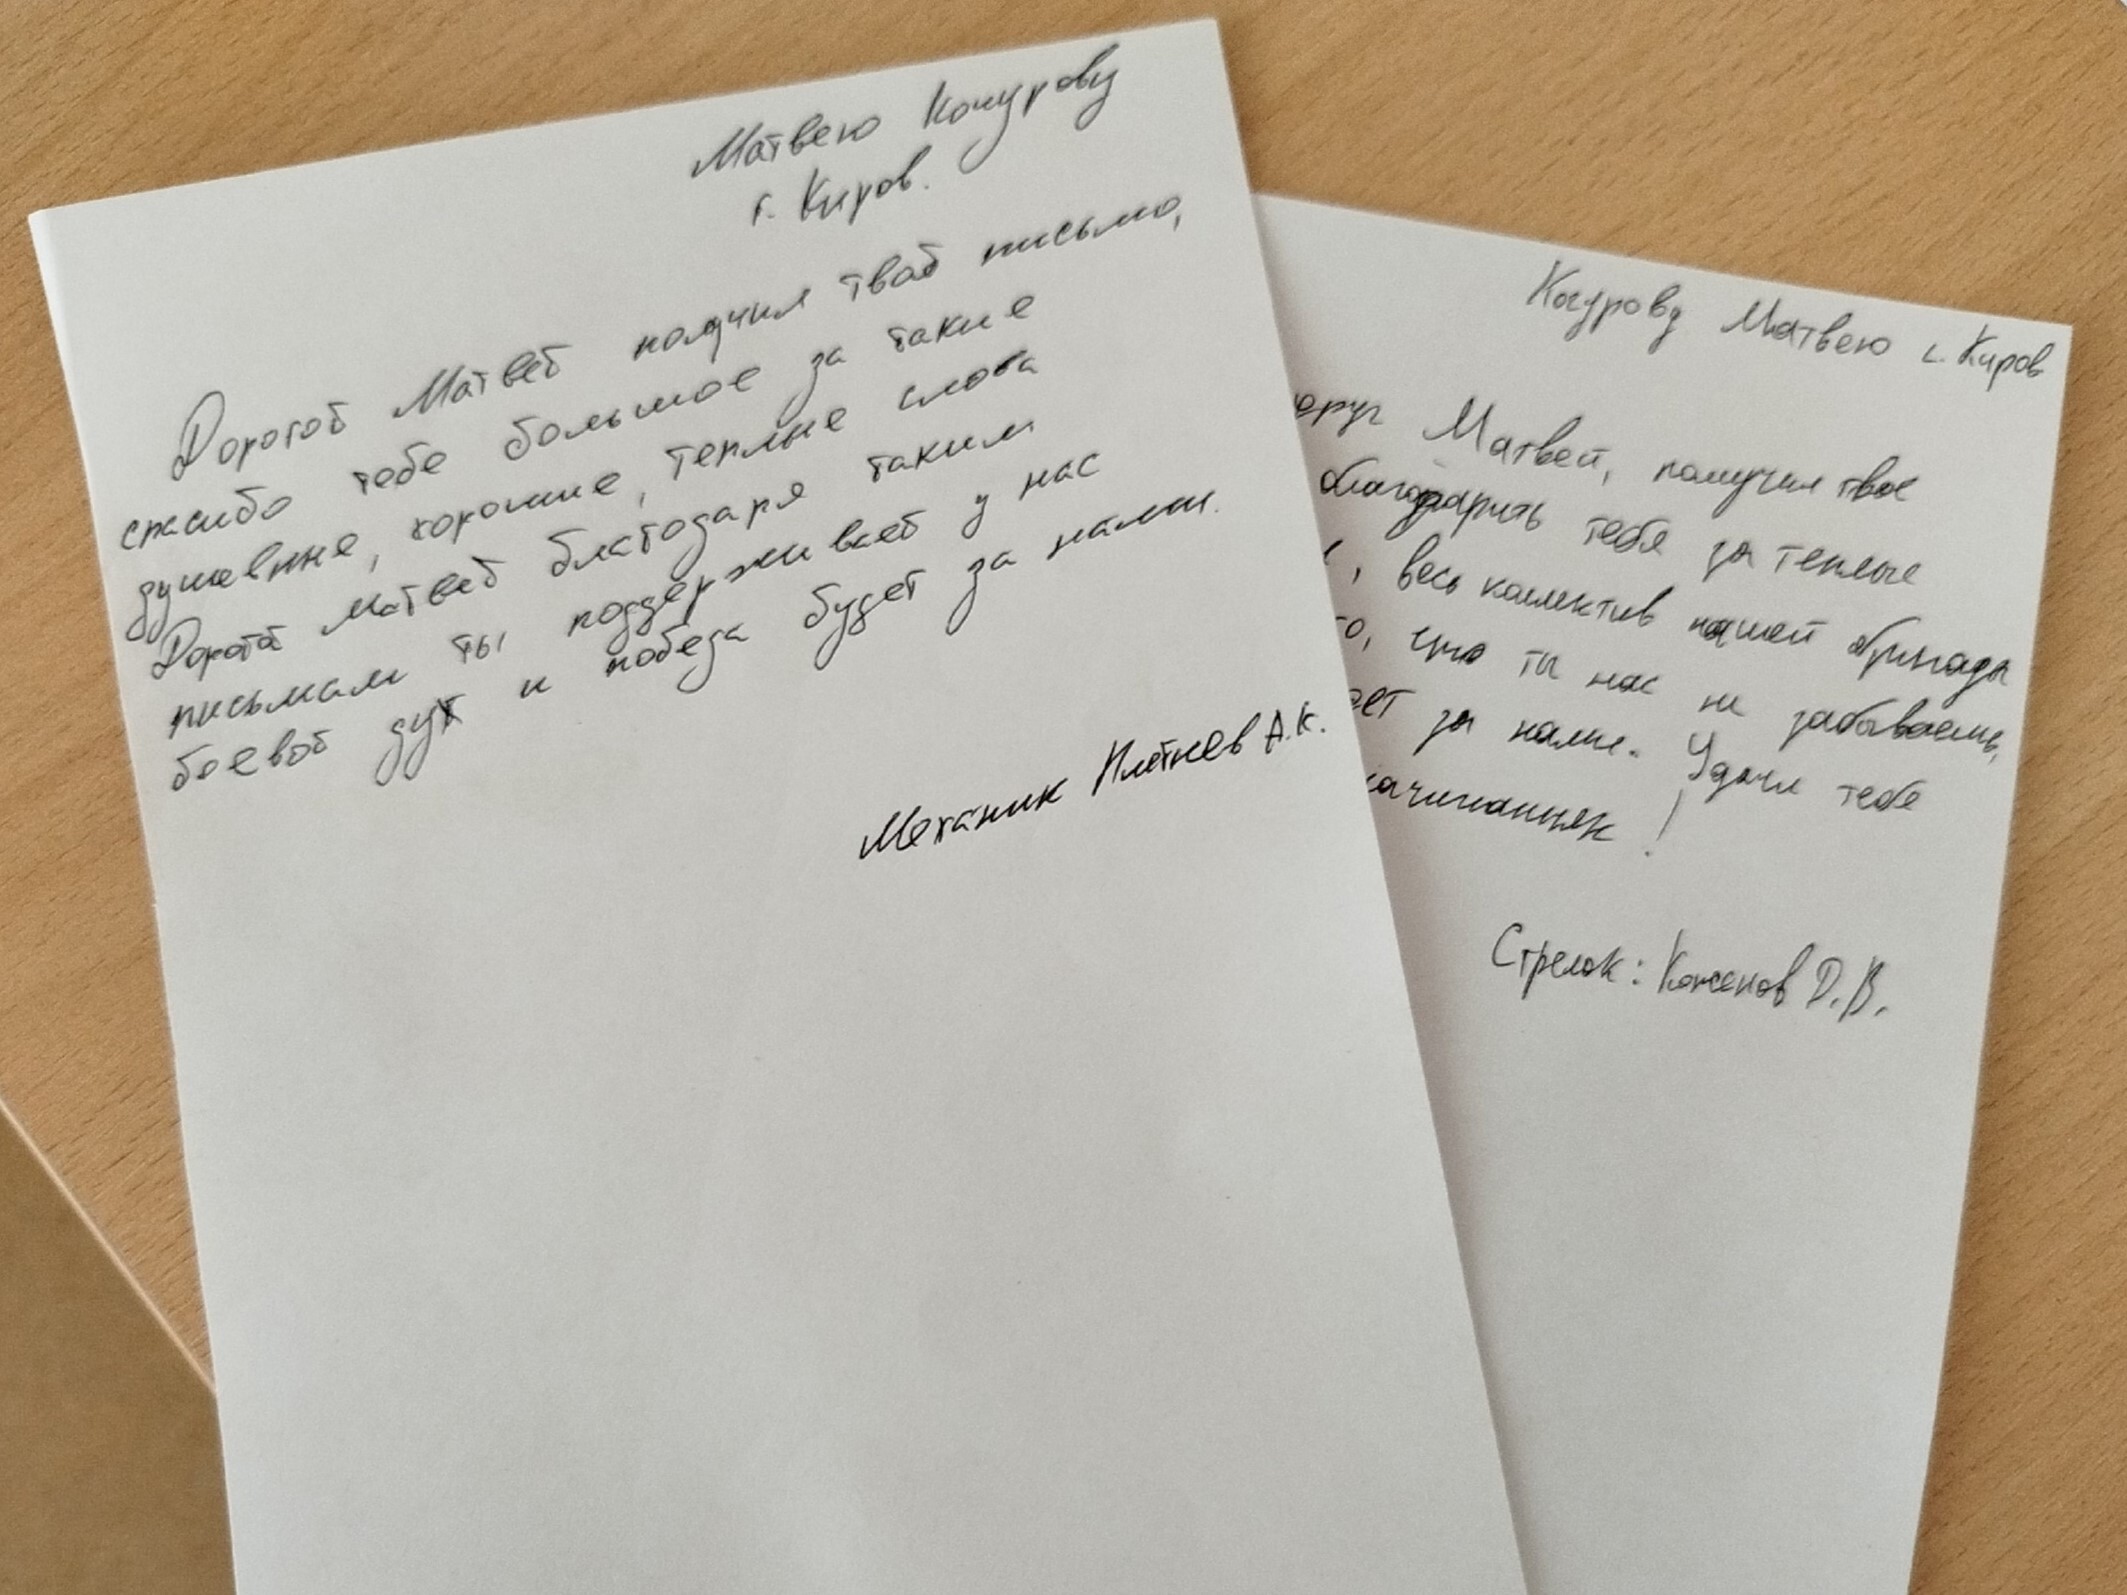 Матвею Кочурову
г. Киров.
Дорогой Матвей получил твоё письмо,
спасибо тебе большое за такие
душевные, хорошие, теплые слова
Дорогой Матвей благодаря таким
письмам ты поддерживает у нас
боевой дух и победа будет за нами.
Механик Плетнев А.К.
Кочурову Матвею г. Киров
друг Матвей, получил твое
благодарить тебя за теплые
, весь коллектив нашей бригады
то, что ты нас не забываешь,
ет за нами. Удачи тебе
начинаниях!
Стрелок: Коженов Д.В.